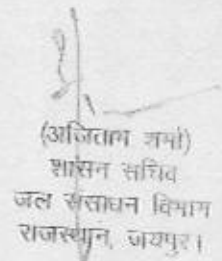 (अजिताभ शर्मा)
शासन सचिव
जल संसाधन विभाग
राजस्थान, जयपुर।